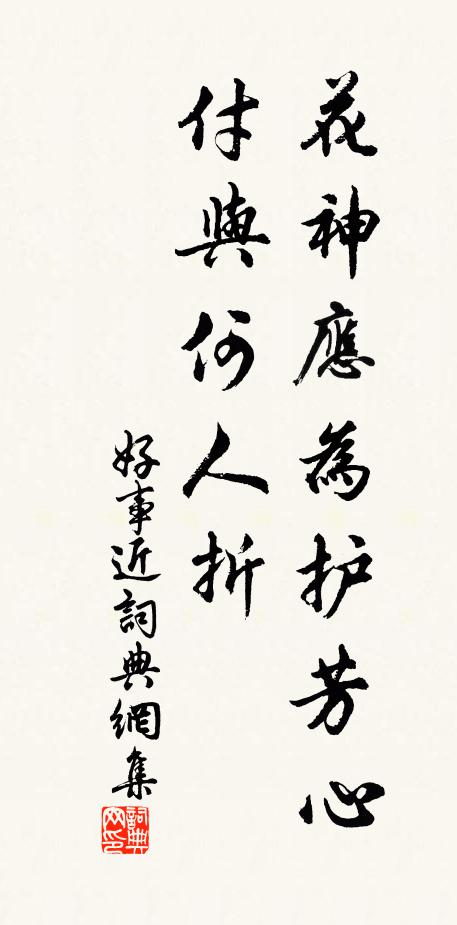 花神應為护芳心
付與何人折
好事近詞典網集
詞典网印